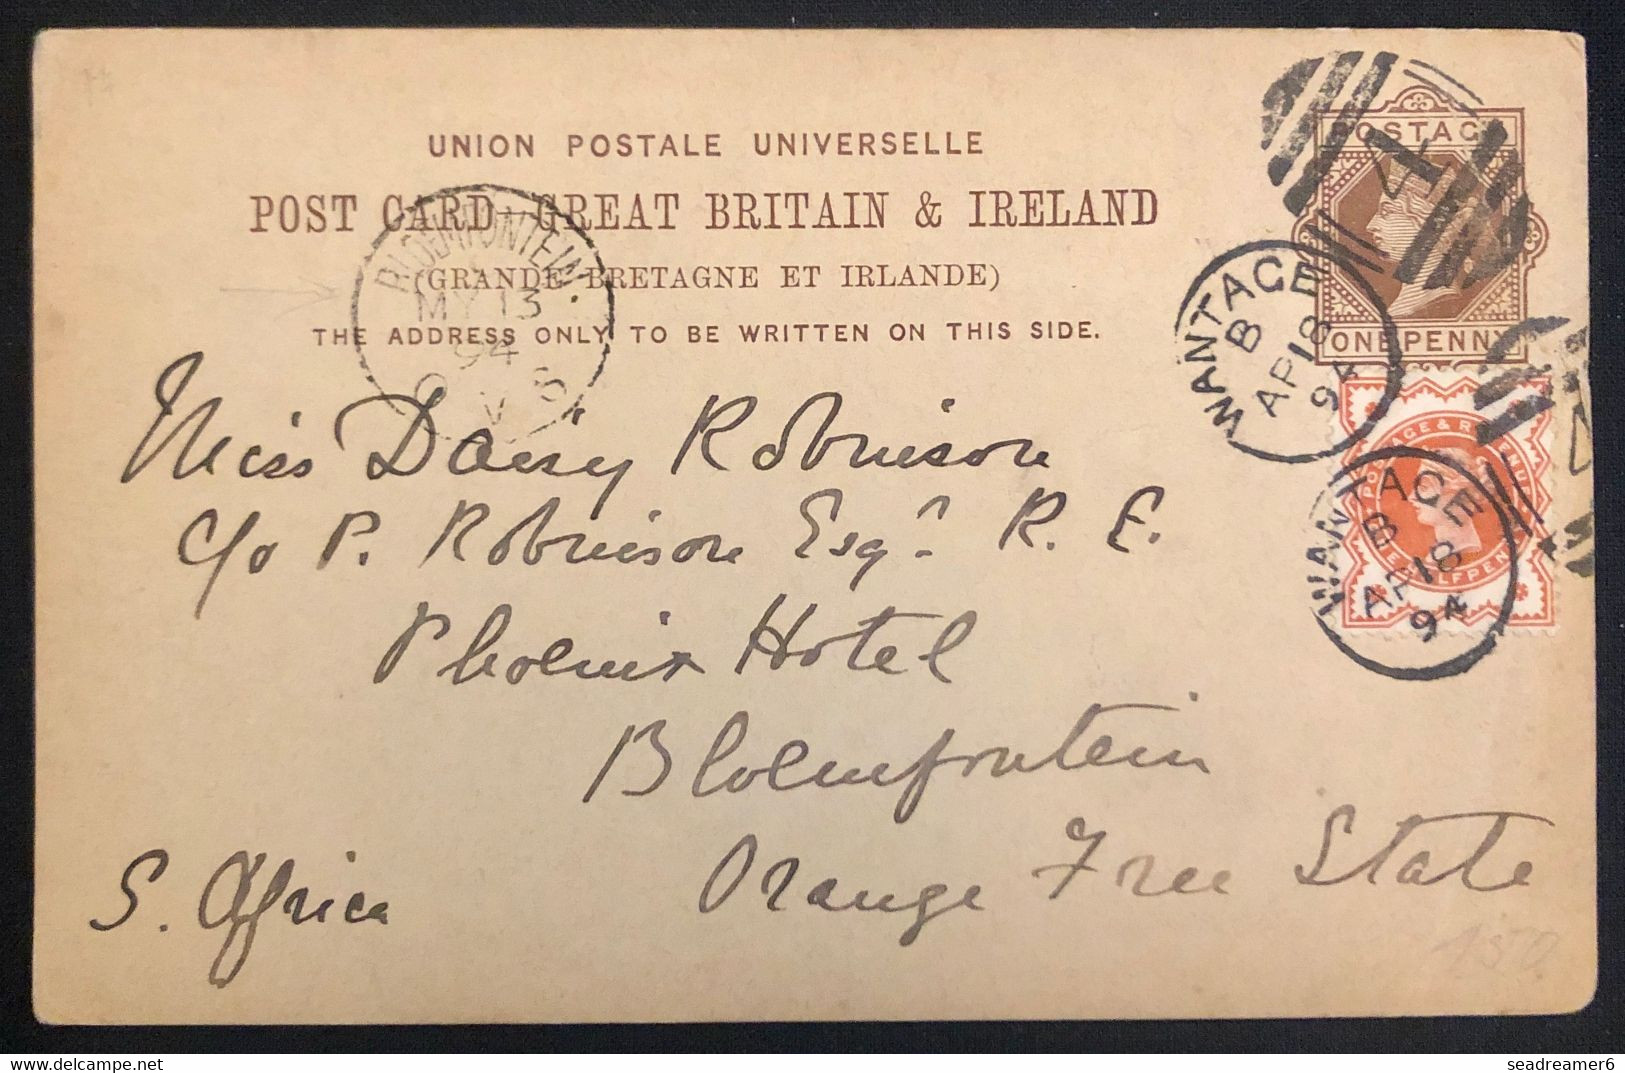 UNION POSTALE UNIVERSELLE
POST CARD - GREAT BRITAIN & IRELAND
(GRANDE-BRETAGNE ET IRLANDE)
THE ADDRESS ONLY TO BE WRITTEN ON THIS SIDE.
BLOEMFONTEIN
MY 13
94
O V S
POSTAG
ONE PENNY
WANTAGE
B
AP 18
94
POSTAGE & REVENUE
HALFPEN
WANTAGE
B
AP 18
94
Miss Daisy Robinson
c/o P. Robinson Esqr. R. E.
Phoenix Hotel
Bloemfontein
Orange Free State
S. Africa
150
www.delcampe.net
seadreamer6